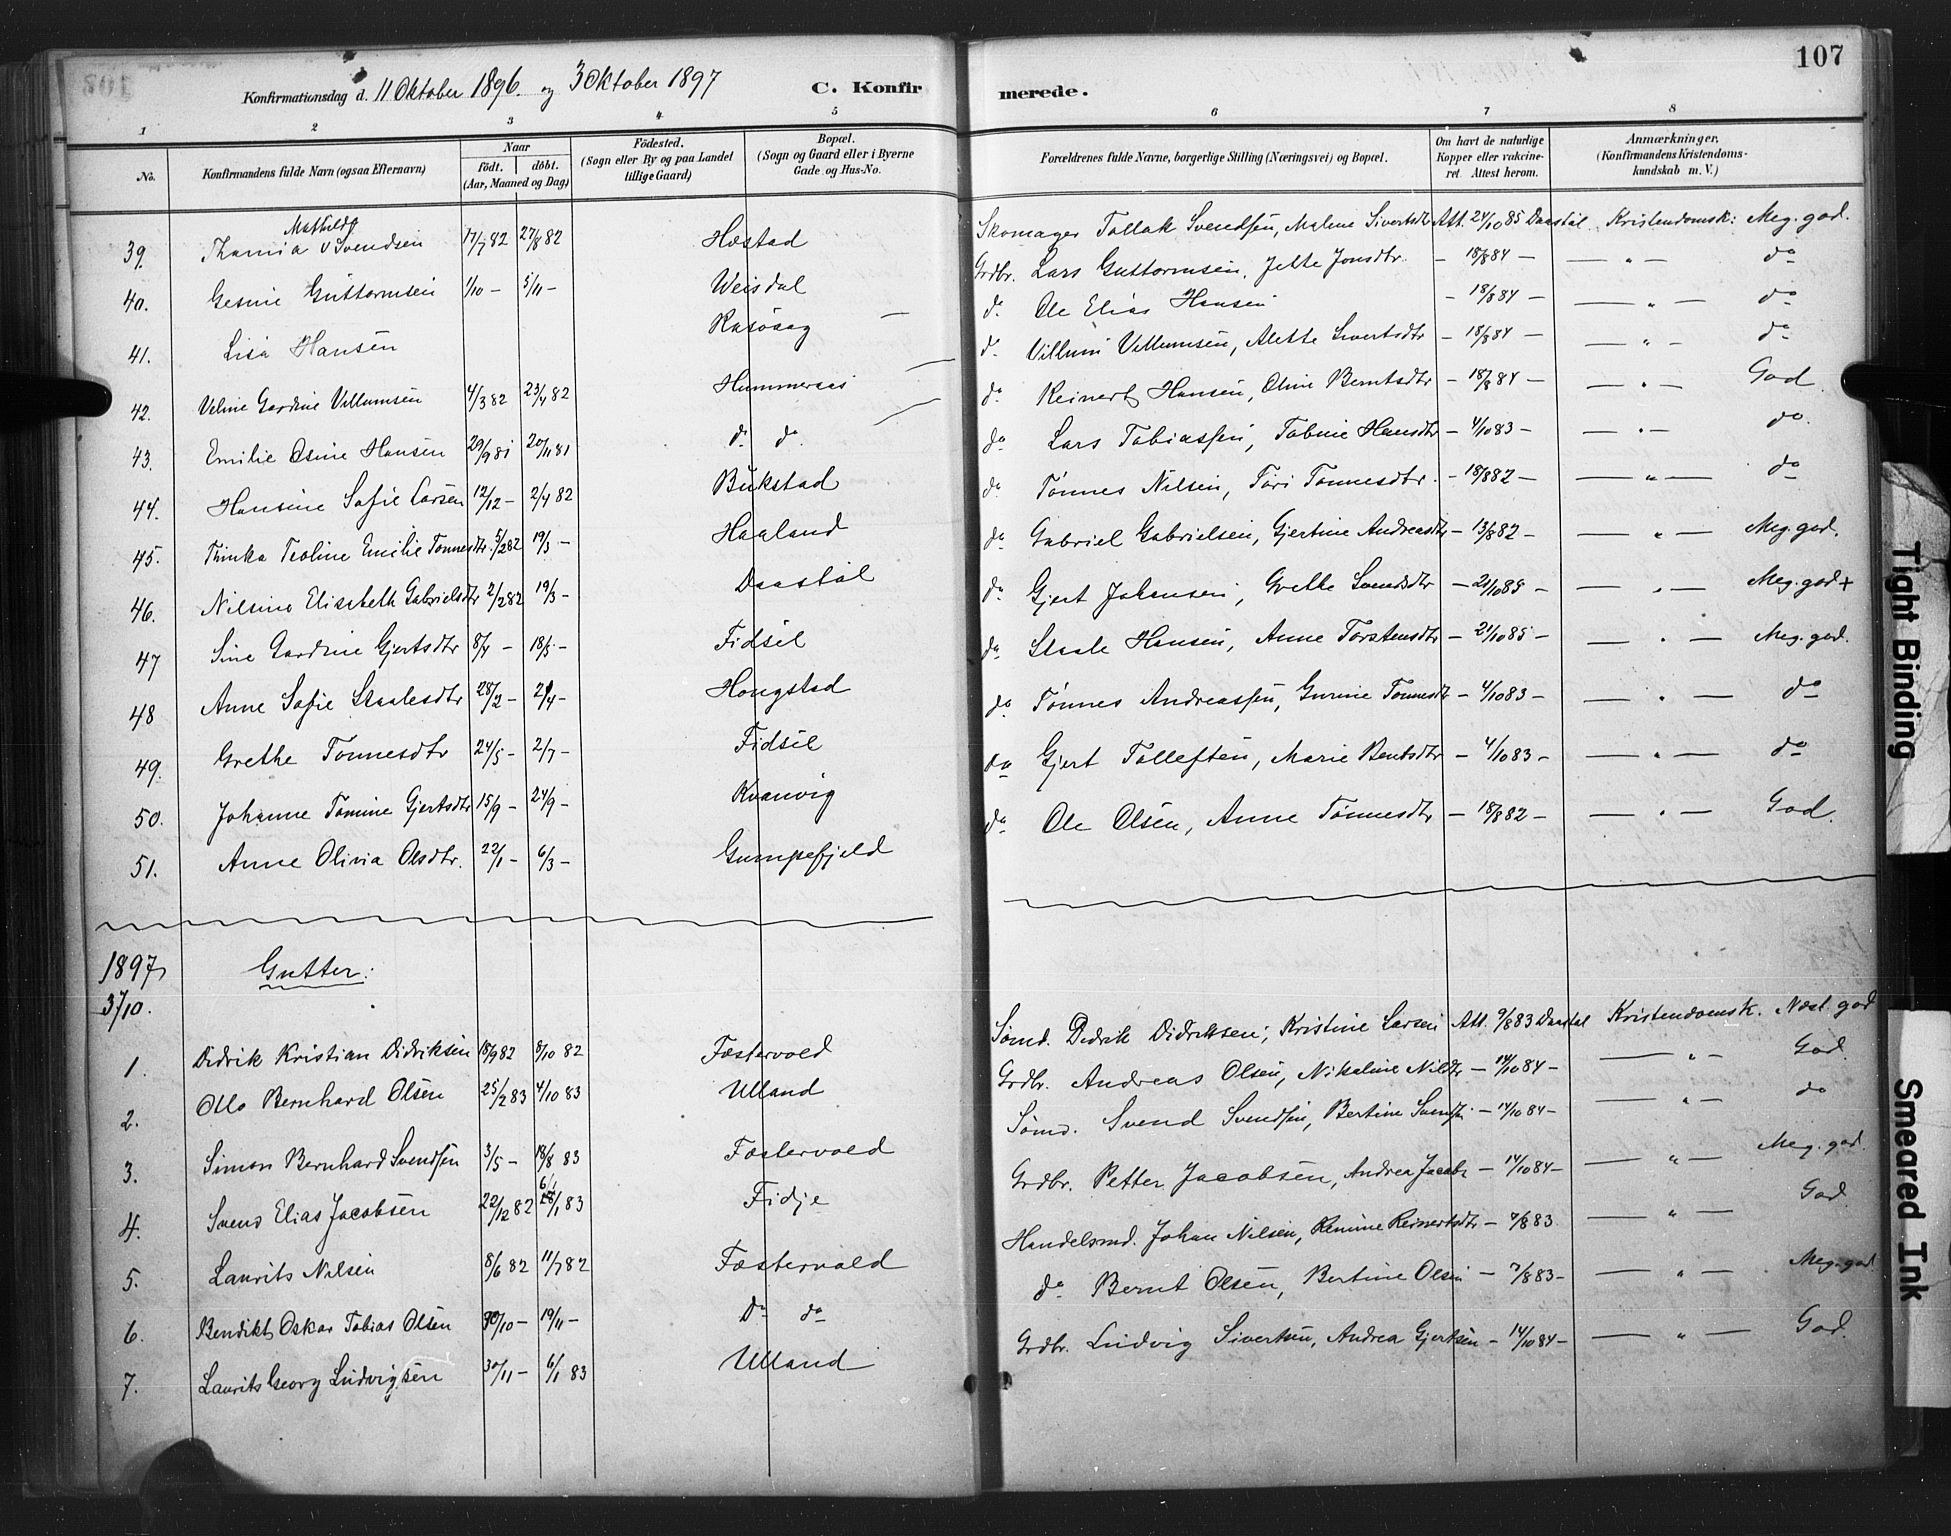 107
Konfirmationsdag d. 11 Oktober 1896. og 3 Oktober 1897 C. Konfir merede.
1 2 3 4 5 6 7 8
No.
Konfirmandens fulde Navn (ogsaa Efternavn)
Naar
født. døbt.
(Aar, Maaned og Dag)
Födested.
(Sogn eller By og paa Landet
tillige Gaard)
Bopæl.
(Sogn og Gaard eller i Byerne
Gade og Hus-No.
Forældrenes fulde Navne, borgerlige Stilling (Næringsvei) og Bopæl.
Om havt de naturlige
Kopper eller vakcine-
ret Attest herom.
Anmærkninger.
(Konfirmandens Kristendoms-
kundskab m. V.)
Mathilde
39. Svendsen 17/7 82 27/8 82 Hæstad Skomager Tollak Svendsen, Malene Sivertsdtr Att. 24/10 85 Daastøl Kristendomsk: Meg. god.
40. Gesine Guttormsen 1/10 – 5/11 – Weisdal Grdbr. Lars Guttormsen, Jette Jonsdtr. – 18/8 84 – — „ — do
41. Lisa Hansen Rasövag — d. Ole Elias Hansen – 18/8 84 – — „ — do
42. Veline Gardine Villumsen 4/3 82 23/4 82 Hummeraas d. Villum Villumsen, Alette Sivertsdtr – 18/8 84 – — „ — do
43. Emilie Osine Hansen 29/9 81 20/11 81 do do. do Reinert Hansen, Oline Berntsdtr – 18/8 84 – — „ — God
44. Hansine Sofie Larsen 12/12 – 2/4 82 Bukstad do Lars Tobiassen, Tobine Hansdtr – 4/10 83 – — „ — do.
45. Thinka Teoline Emilie Tønnesdtr. 5/2 82 19/3 – Haaland do Tønnes Nilsen, Tori Tønnesdtr. – 18/8 82 – — „ — do
46. Nilsine Elisabeth Gabrielsdtr 2/2 82 19/3 – Daastøl do Gabriel Gabrielsen, Gjertine Andreasdtr – 13/8 82 – — „ — Meg. god.
47 Sine Gardine Gjertsdtr 8/4 – 18/5 – Fidsel do Gjert Johansen, Grethe Svendsdtr – 21/10 85 – — „ — Meg. god +
48 Anne Sofie Staalesdtr 28/2 – 2/4 – Hougstad do Staale Hansen, Anne Torstensdtr – 21/10 85 – — „ — Meg. god.
49. Grethe Tonnesdtr 24/5 – 2/7 – Fidsel do Tønnes Andreassen, Gurine Tønnesdtr – 4/10 83 – — „ — do
50. Johanne Tomine Gjertsdtr 15/9 – 24/9 – Kvanvig do Gjert Tolleften, Marie Bentsdtr – 4/10 83 – — „ — do
51. Anne Olivia Olsdtr. 22/1 – 6/3 – Gumpefjeld do Ole Olsen, Anne Tønnesdtr – 18/8 82 – — „ — God.
1897 Gutter:
3/10.
1. Didrik Kristian Didriksen 18/9 82 8/10 82 Fæstervold Sømd. Didrik Didriksen, Kristine Larsen Att. 9/8 83 Daastøl Kristendomsk. Næst. god
2. Otto Bernhard Olsen 25/2 83 4/10 83 Ulland Grdbr. Andreas Olsen, Nikoline Nilsdtr – 14/10 84 – — „ — God.
3. Simon Bernhard Svendsen 3/5 – 18/8 83 Fæstervold Sømd. Svend Svendsen, Bertine Svendsen – 14/10 84 – — „ — do
4. Svend Elias Jacobsen 22/12 82 1 83 Fidje Grdbr. Petter Jacobsen, Andrea Jacobs – 14/10 84 – — „ — Meg. god.
5. Laurits Nilsen 8/6 82 11/7 82 Fæstervold Handelsmd. Johan Nilsen, Reinertsdtr – 7/8 83. — „ — God
6. Benedikt Oskar Tobias Olsen 30/10 – 19/11 – Do do do Bernt Olsen, Bertine Olsen – 7/8 83 – — „ — Meg. god
7. Laurits Georg Ludvigsen 30/11 – 6/1 83 Ulland Grdbr. Ludvig Sivertsen, Andrea Gjertsen – 14/10 84 – — „ — God.
Tight Binding
Smeared Ink